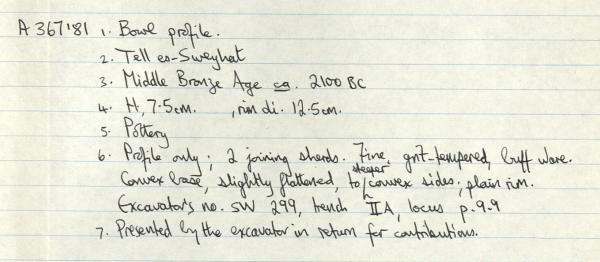 A 367'81 1. Bowl profile.
2. Tell es-Sweyhat
3. Middle Bronze Age ca. 2100 BC
4. H, 7.5cm. , rim di. 12.5cm.
5. Pottery
6. Profile only; 2 joining sherds. Fine, grit-tempered, buff ware.
Convex base, slightly flattened, to steeper convex sides; plain rim.
Excavator's no. SW 299, trench IIA, locus p.9.9
7. Presented by the excavator in return for contributions.